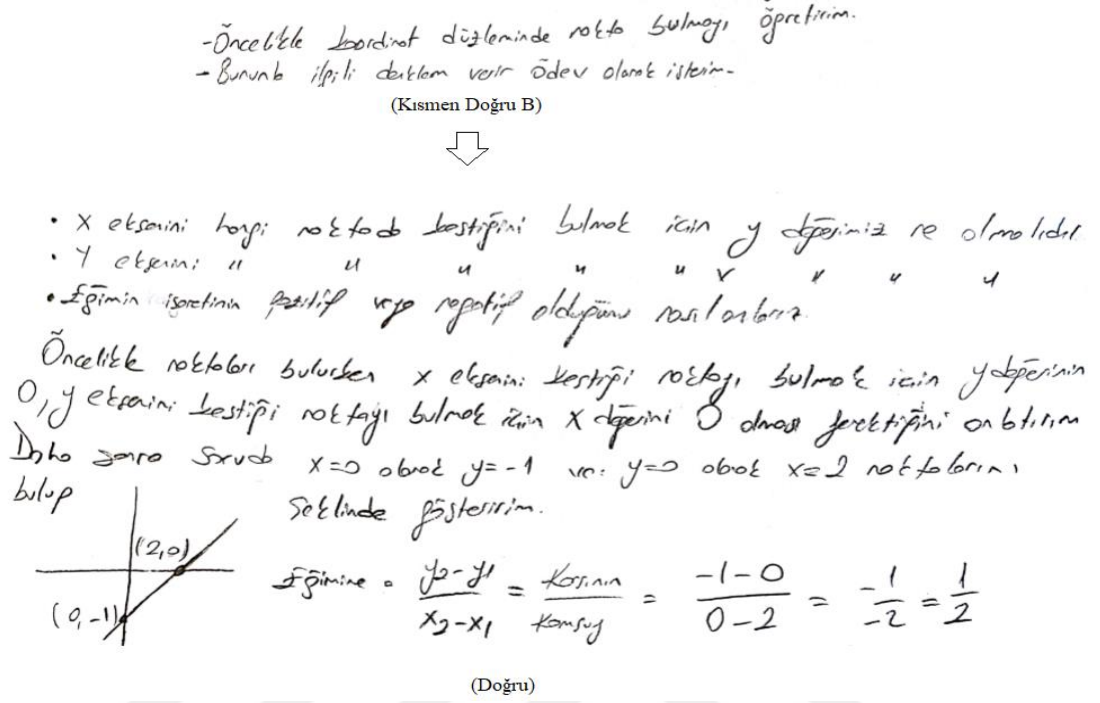 -Öncelikle koordinat düzleminde nokta bulmayı öğretirim.
- Bununla ilgili denklem verir ödev olarak isterim.
(Kısmen Doğru B)
• X eksenini hangi noktada kestiğini bulmak için y değerimiz ne olmalıdır
• Y eksenini " " " " " x " " "
• Eğimin işaretinin pozitif veya negatif olduğunu nasıl anlarız.
Öncelikle noktaları bulurken x eksenini kestiği noktayı bulmak için y değerinin
0, y eksenini kestiği noktayı bulmak için x değerini 0 olması gerektiğini anlatırım
Daha sonra soruda x=0 olarak y=-1 ve y=0 olarak x=2 noktalarını
bulup şeklinde gösteririm.
(2,0)
(0,-1)
Eğimine = y2-y1 / x2-x1 = Karşının / Komşuy = -1-0 / 0-2 = -1 / -2 = 1 / 2
(Doğru)